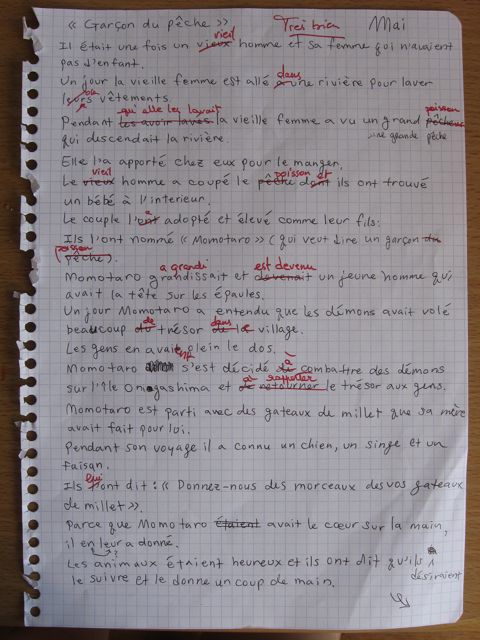 « Garçon du pêche » Très bien Mai
vieil
Il était une fois un vieux homme et sa femme qui n'avaient
pas d'enfant.
dans
Un jour la vieille femme est allé a une rivière pour laver
leurs vêtements.
qu'elle les lavait poisson
Pendant les avoir lavés la vieille femme a vu un grand pêcheur
qui descendait la rivière. une grande pêche
Elle l'a apporté chez eux pour le manger.
vieil poisson et
Le vieux homme a coupé le pêche dont ils ont trouvé
un bébé à l'interieur.
a
Le couple l'ont adopté et élevé comme leur fils.
Ils l'ont nommé « Momotaro » (qui veut dire un garçon du
poisson
pêche).
a grandi est devenu
Momotaro grandissait et devenait un jeune homme qui
avait la tête sur les épaules.
Un jour Momotaro a entendu que les démons avait volé
de dans
beaucoup du trésor de le village.
ent
Les gens en avait plein le dos.
à
Momotaro s'est décidé de combattre des démons
rapporter
sur l'île Onogashima et de retourner le trésor aux gens.
Momotaro est parti avec des gateaux de millet que sa mère
avait fait pour loi.
Pendant son voyage il a connu un chien, un singe et un
faisan.
lui
Ils l'ont dit : « Donnez-nous des morceaux des vos gateaux
de millet ».
Parce que Momotaro étaient avait le cœur sur la main,
il en leur a donné.
Les animaux étaient heureux et ils ont dit qu'ils
désiraient
le suivre et le donne un coup de main.